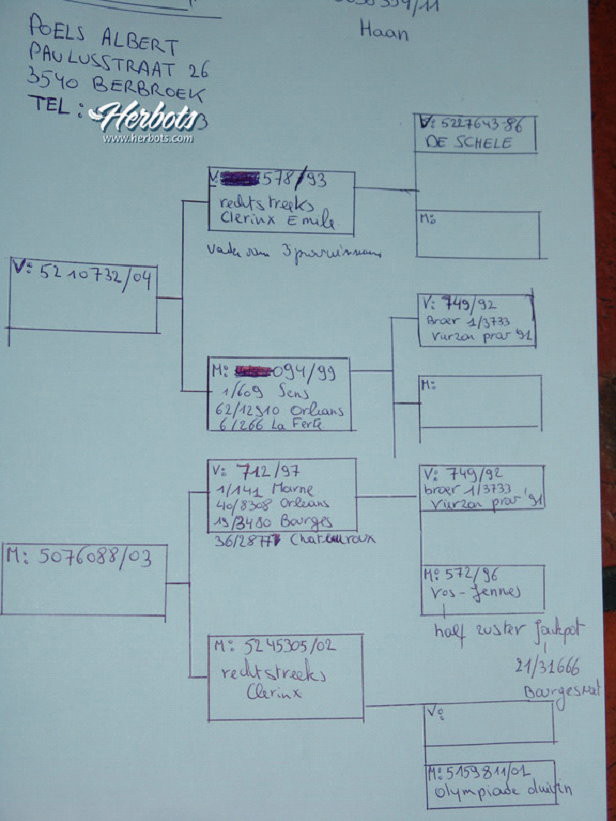 Haan
POELS ALBERT
PAULUSSTRAAT 26
3540 BERBROEK
TEL:
Herbots
www.herbots.com
V: 5210732/04
V: 578/93
rechtstreeks
Clerinx Emile
vader van
V: 5227643-86
DE SCHELE
M:
M: 094/99
1/609 Sens
62/12310 Orleans
6/266 La Ferte
V: 749/92
Broer 1/3733
Vierzon prov '91
M:
M: 5076088/03
V: 712/97
1/141 Marne
40/8308 Orleans
19/3480 Bourges
36/2877 Chateauroux
V: 749/92
broer 1/3733
Vierzon prov '91
M: 572/96
Vos-Jennes
half zuster Jackpot
21/31666
Bourges Nat
M: 5245305/02
rechtstreeks
Clerinx
V:
M: 5159811/01
olympiade duivin